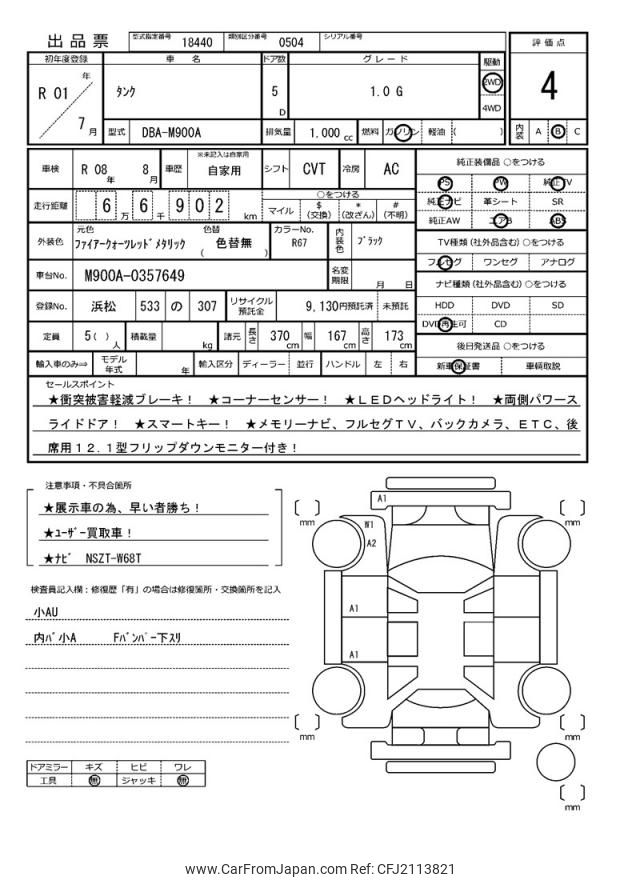 出品票 型式指定番号 18440 類別区分番号 0504 シリアル番号
評価点
4
内装 A B C
初年度登録 車名 ドア数 グレード 駆動
R 01 年 7 月 タンク 5 D 1.0 G 2WD 4WD
型式 DBA-M900A 排気量 1.000 cc 燃料 ガソリン 軽油 ( )
車検 R 08 年 8 月 車歴 ※未記入は自家用 自家用 シフト CVT 冷房 AC
走行距離 6 6万 6千 9 0 2 km ○をつける マイル $(交換) *(改ざん) #(不明)
外装色 元色 ファイアークォーツレッドメタリック 色替 色替無 ( ) カラーNo. R67 内装色 ブラック
車台No. M900A-0357649 名変期限 月 日
登録No. 浜松 533 の 307 リサイクル預託金 9,130円預託済 未預託
定員 5( )人 積載量 kg 諸元 長さ 370 cm 幅 167 cm 高さ 173 cm
輸入車のみ⇒ モデル年式 年 輸入区分 ディーラー 並行 ハンドル 左 右
純正装備品 ○をつける
PS PW 純正TV
純正ナビ 革シート SR
純正AW エアB ABS
TV種類(社外品含む) ○をつける
フルセグ ワンセグ アナログ
ナビ種類(社外品含む) ○をつける
HDD DVD SD
DVD再生可 CD
後日発送品 ○をつける
新車保証書 車輌取説
セールスポイント
★衝突被害軽減ブレーキ！ ★コーナーセンサー！ ★LEDヘッドライト！ ★両側パワース
ライドドア！ ★スマートキー！ ★メモリーナビ、フルセグTV、バックカメラ、ETC、後
席用12.1型フリップダウンモニター付き！
注意事項・不具合箇所
★展示車の為、早い者勝ち！
★ユーザー買取車！
★ナビ NSZT-W68T
検査員記入欄：修復歴「有」の場合は修復箇所・交換箇所を記入
小AU
内バ小A Fバンパー下スリ
ドアミラー キズ ヒビ ワレ
工具 無 ジャッキ 無
A1
W1
A2
A1
A1
mm
mm
mm
mm
mm
www.CarFromJapan.com Ref: CFJ2113821